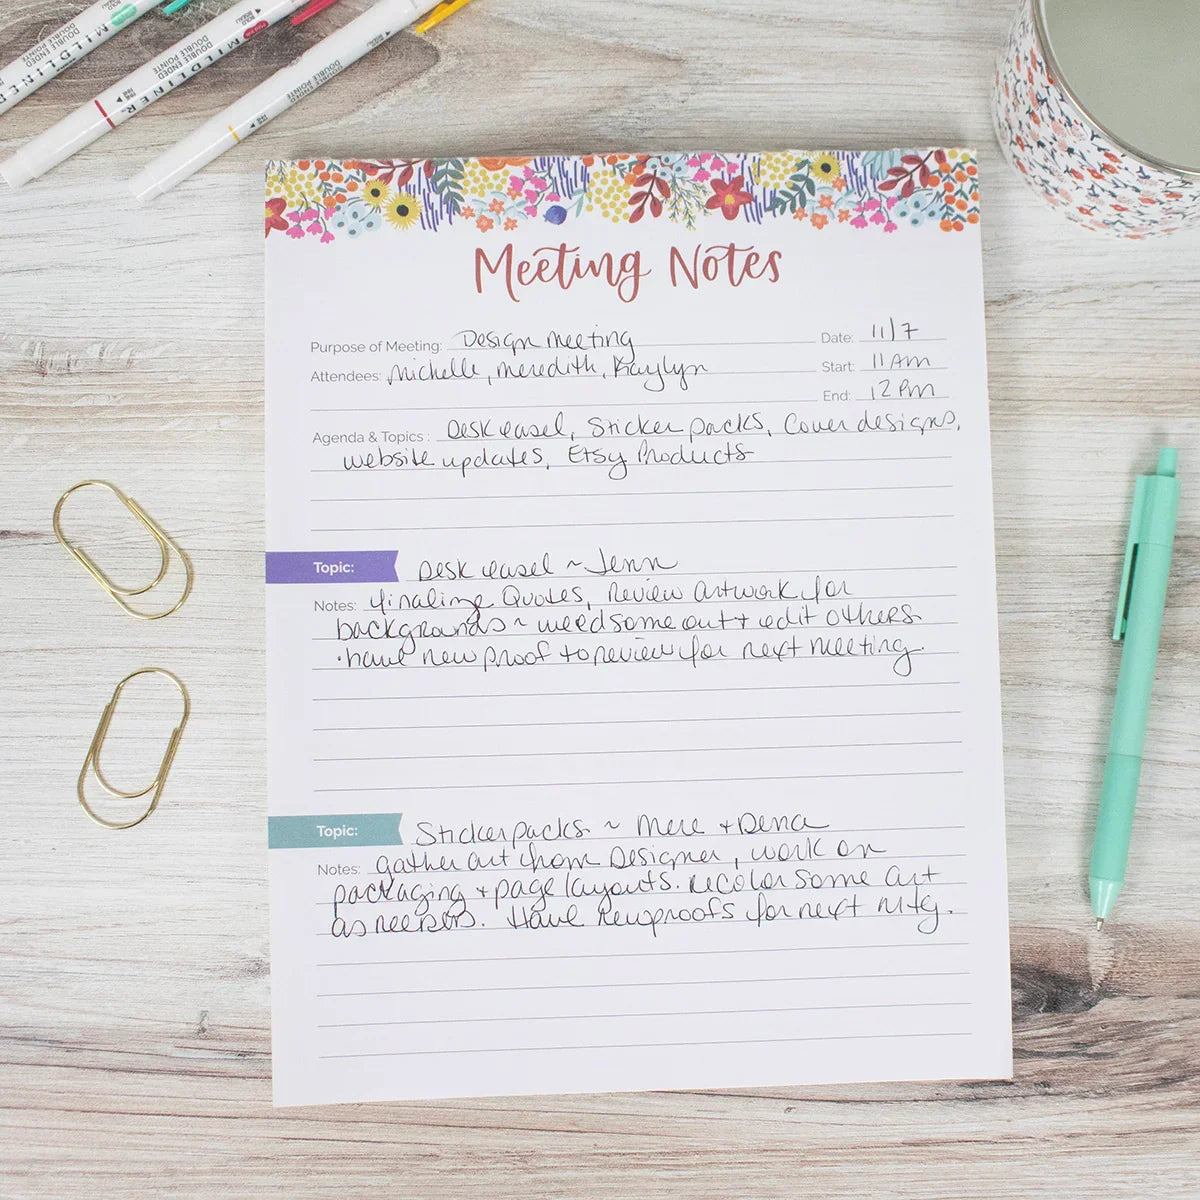 DOUBLE ENDED
MILDLINER
DOUBLE ENDED
MILDLINER
DOUBLE ENDED
MILDLINER
Meeting Notes
Purpose of Meeting: Design meeting Date: 11/7
Attendees: Michelle, meredith, Kaylyn Start: 11 Am
End: 12 Pm
Agenda & Topics : Desk easel, Sticker packs, Cover designs,
website updates, Etsy Products
Topic: Desk easel ~ Jenn
Notes: finalize Quotes, Review artwork for
backgrounds ~ weed some out + edit others.
• have new proof to review for next meeting.
Topic: Sticker packs ~ Mere + Dena
Notes: gather art from Designer, work on
packaging + page layouts. recolor some art
as needed. Have new proofs for next mtg.